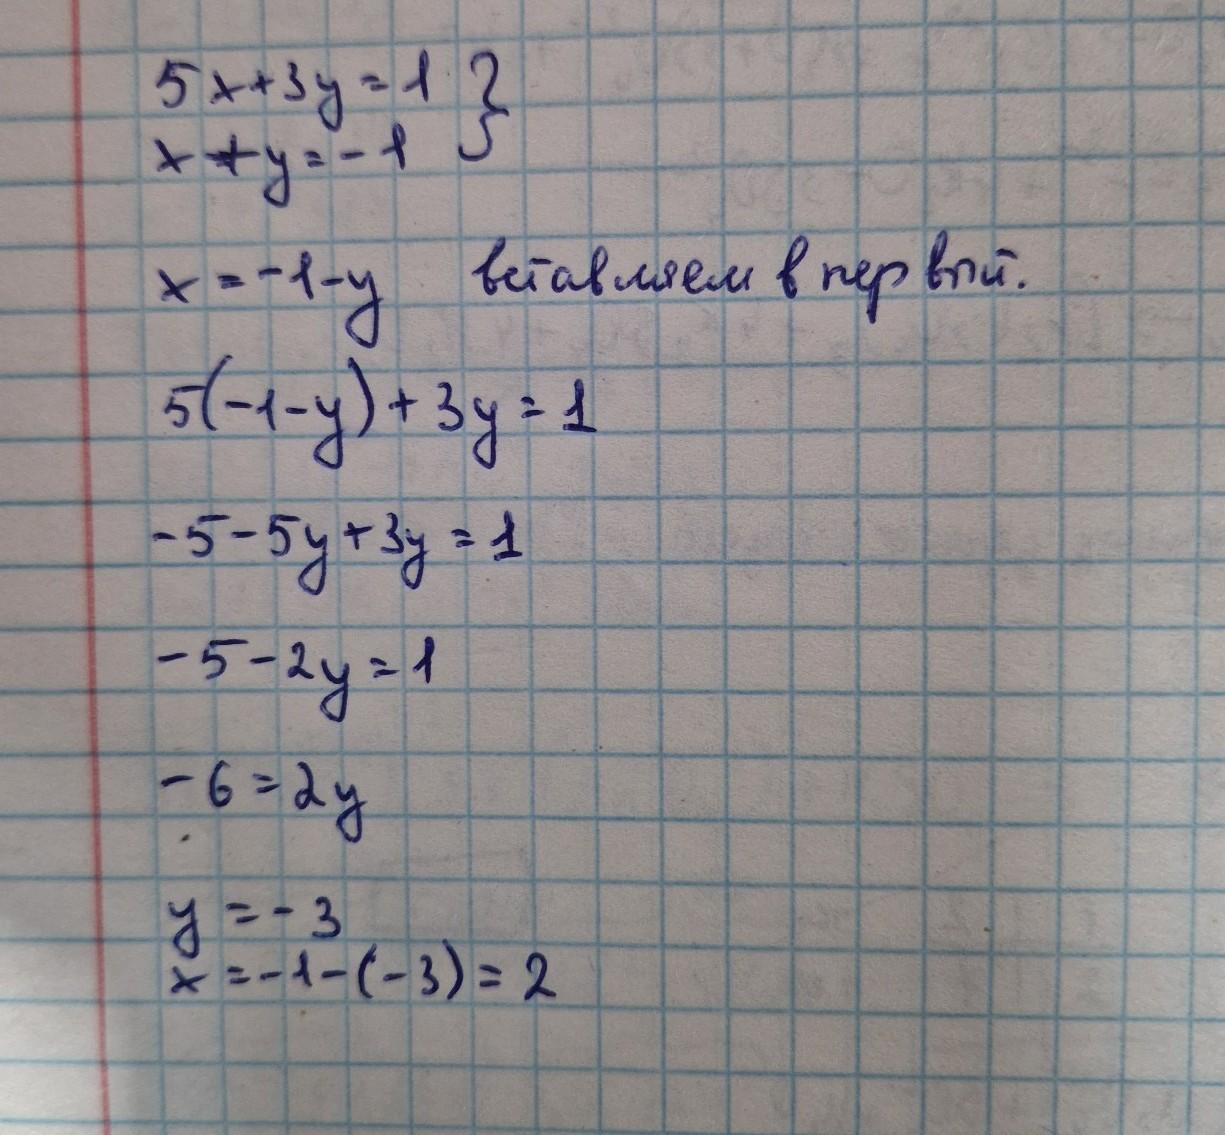 5x+3y=1 }
x+y=-1
x=-1-y вставляем в первый.
5(-1-y)+3y=1
-5-5y+3y=1
-5-2y=1
-6=2y
y=-3
x=-1-(-3)=2